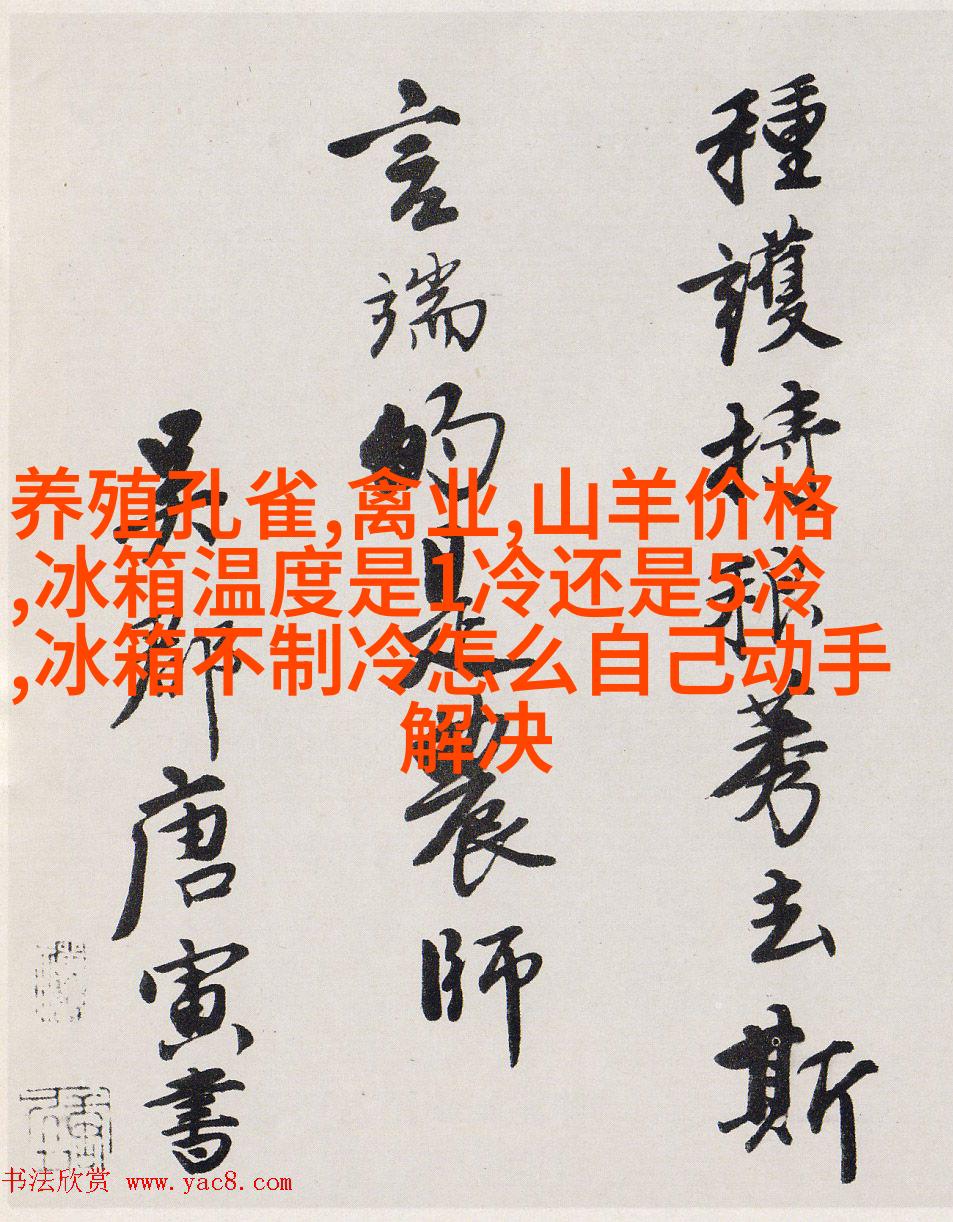 種護稂莠去斯
言端的是農師
吳郡唐寅書
养殖孔雀,禽业,山羊价格
,冰箱温度是1冷还是5冷
,冰箱不制冷怎么自己动手
解决
书法欣赏 www.yac8.com